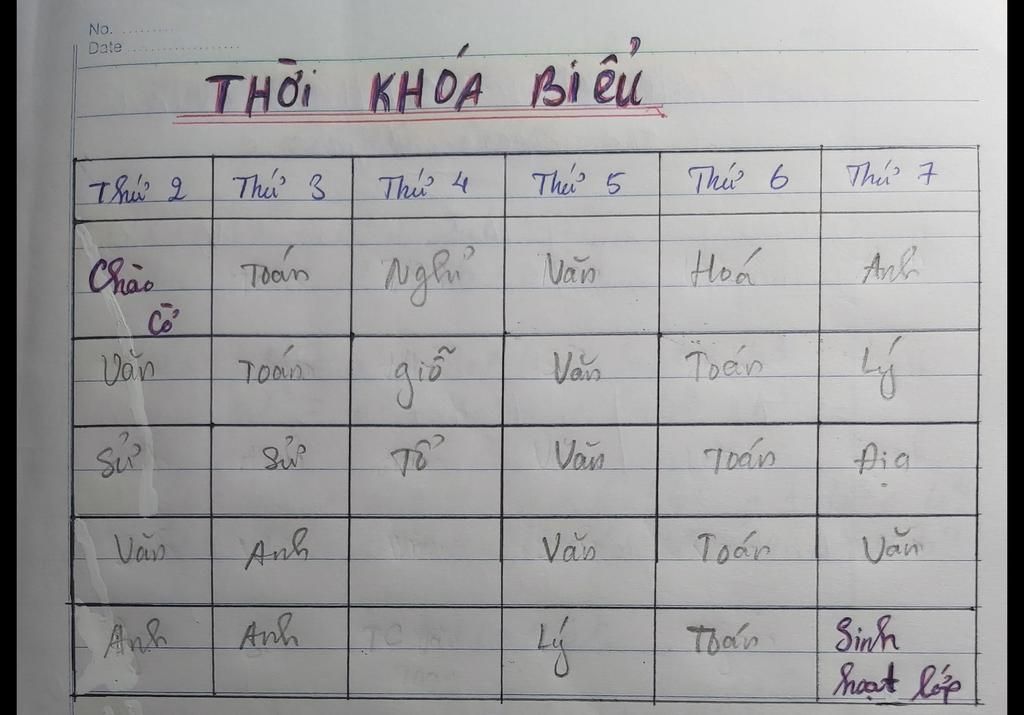 No. ........
Date ....................
THỜI KHÓA BIỂU
Thứ 2 Thứ 3 Thứ 4 Thứ 5 Thứ 6 Thứ 7
Chào Toán Nghỉ Văn Hoá Anh
Cờ
Văn Toán giỗ Văn Toán Lý
Sử Sử Tổ Văn Toán Địa
Văn Anh Văn Toán Văn
Anh Anh Lý Toán Sinh
hoạt lớp